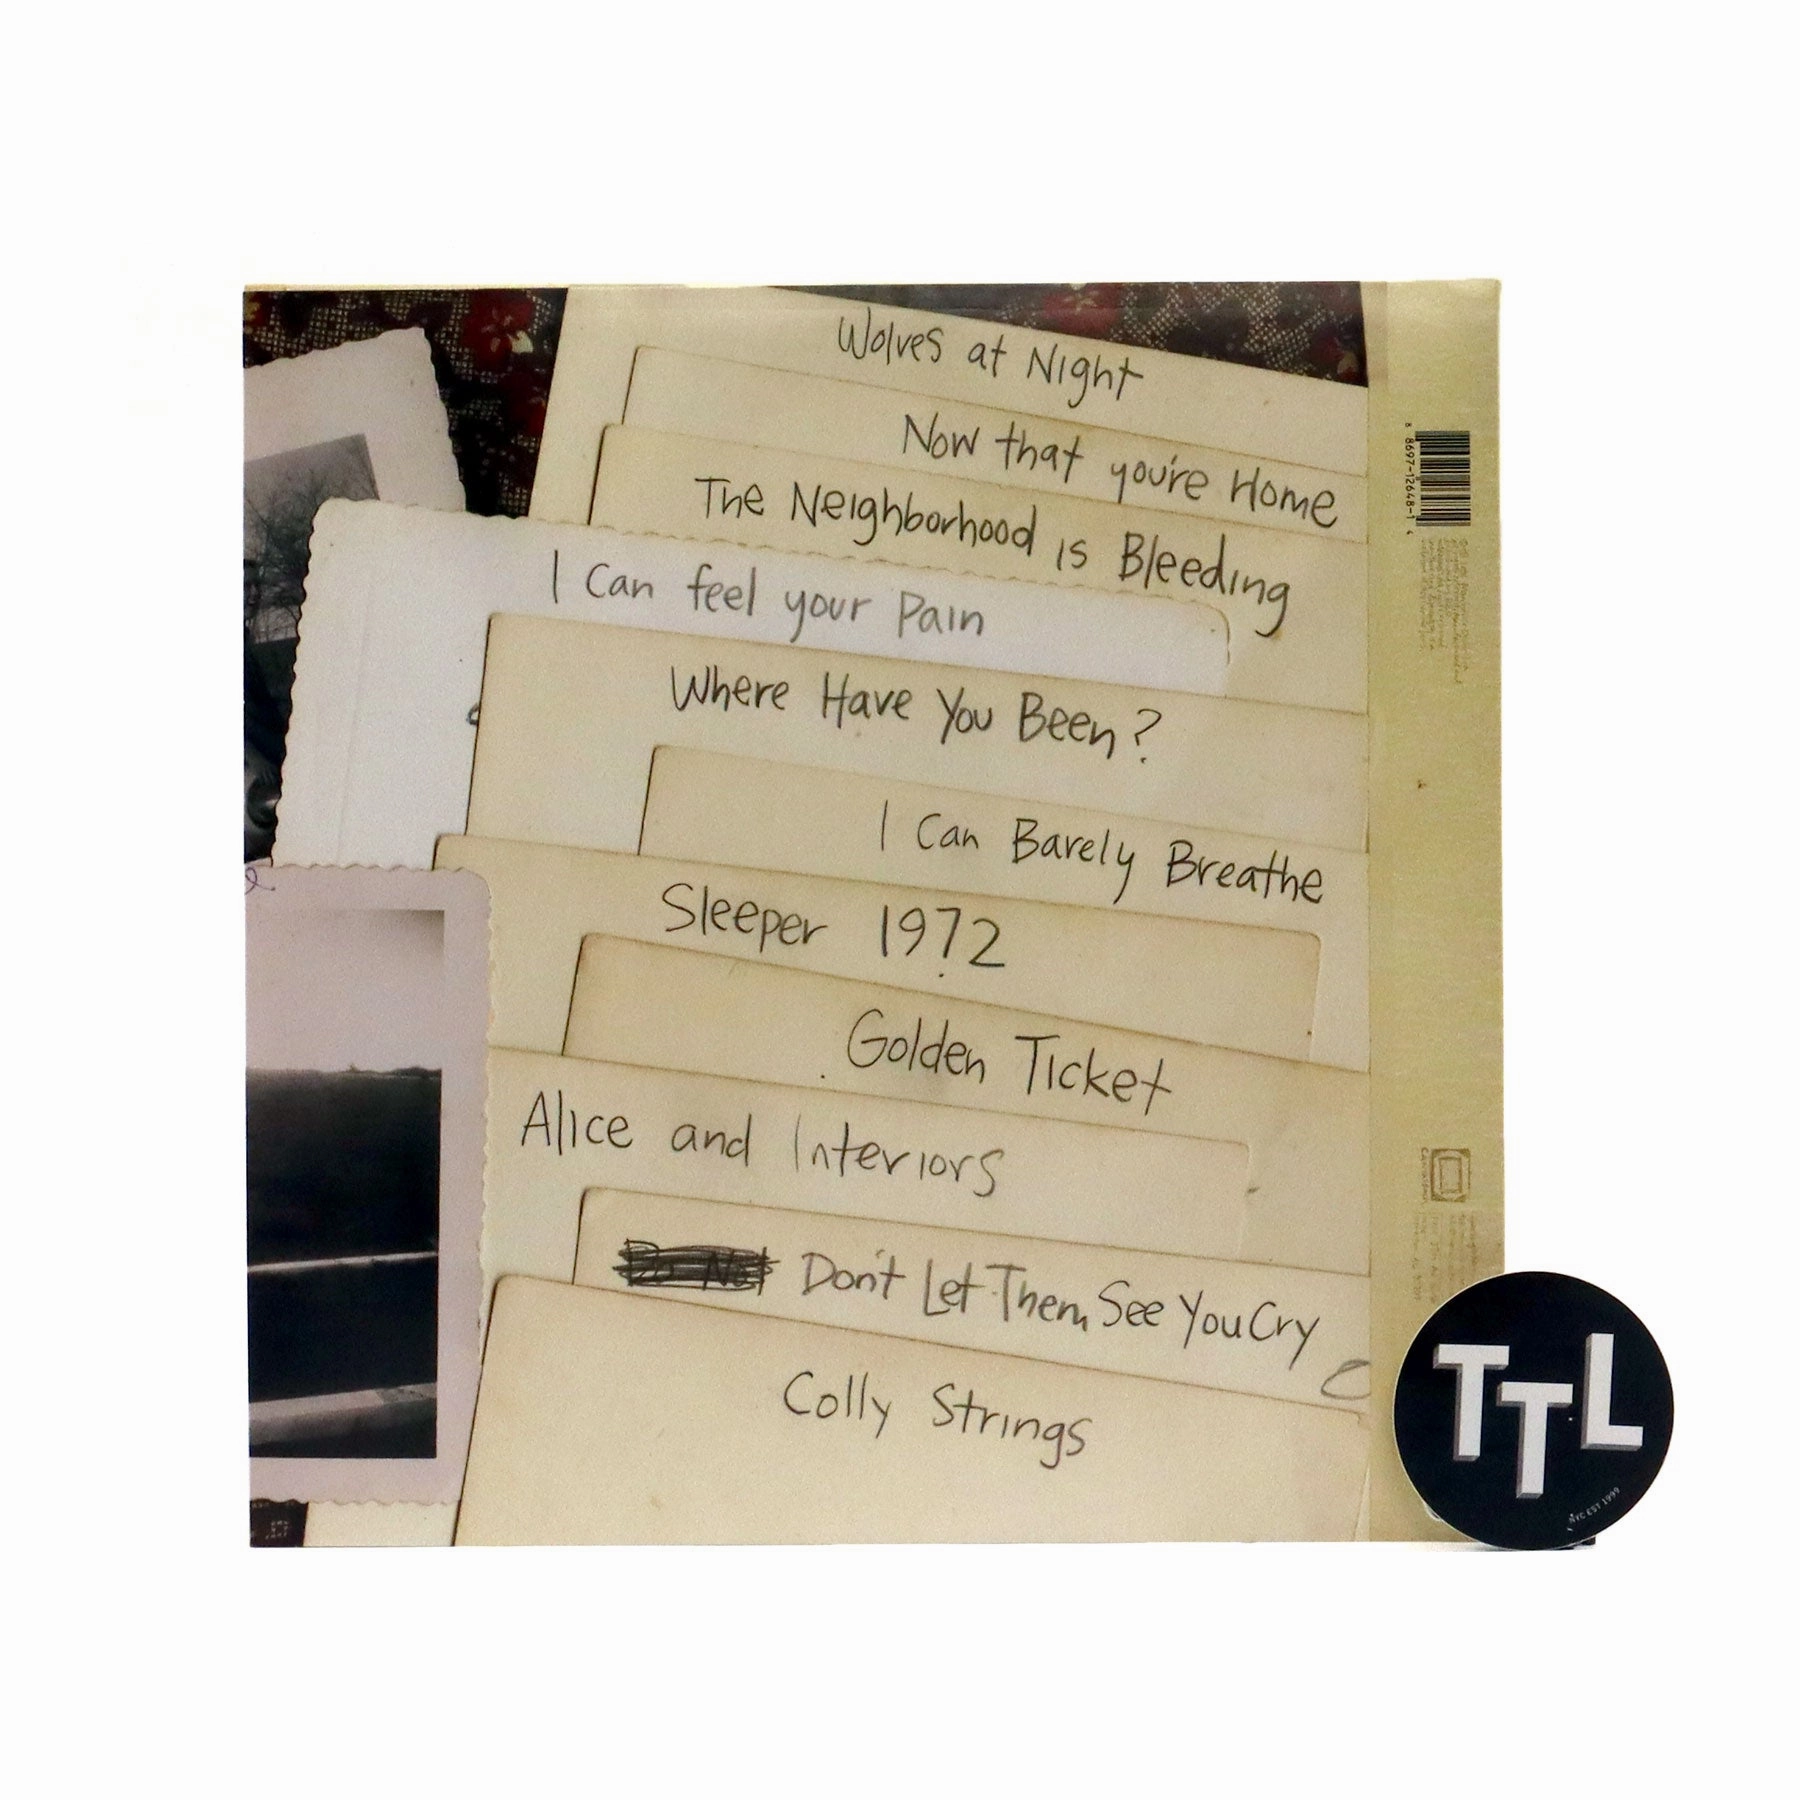 Wolves at Night
Now that you're Home
The Neighborhood is Bleeding
I Can feel your Pain
Where Have You Been?
I Can Barely Breathe
Sleeper 1972
Golden Ticket
Alice and Interiors
Do Not Don't Let Them See You Cry
Colly Strings
8 8697-12648-1 4
TTL
NYC EST 1999